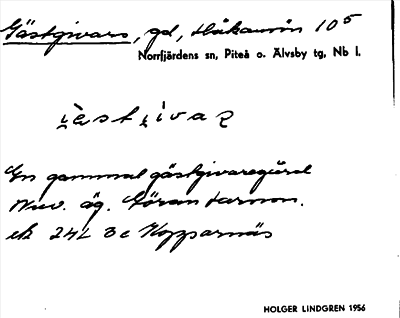 Gästgivars, gd, Håkansön 10⁵
Norrfjärdens sn, Piteå o. Älvsby tg, Nb l.
En gammal gästgivaregård
Nuv. äg. Göran Larson.
ek 24L 3c Kopparnäs
HOLGER LINDGREN 1956